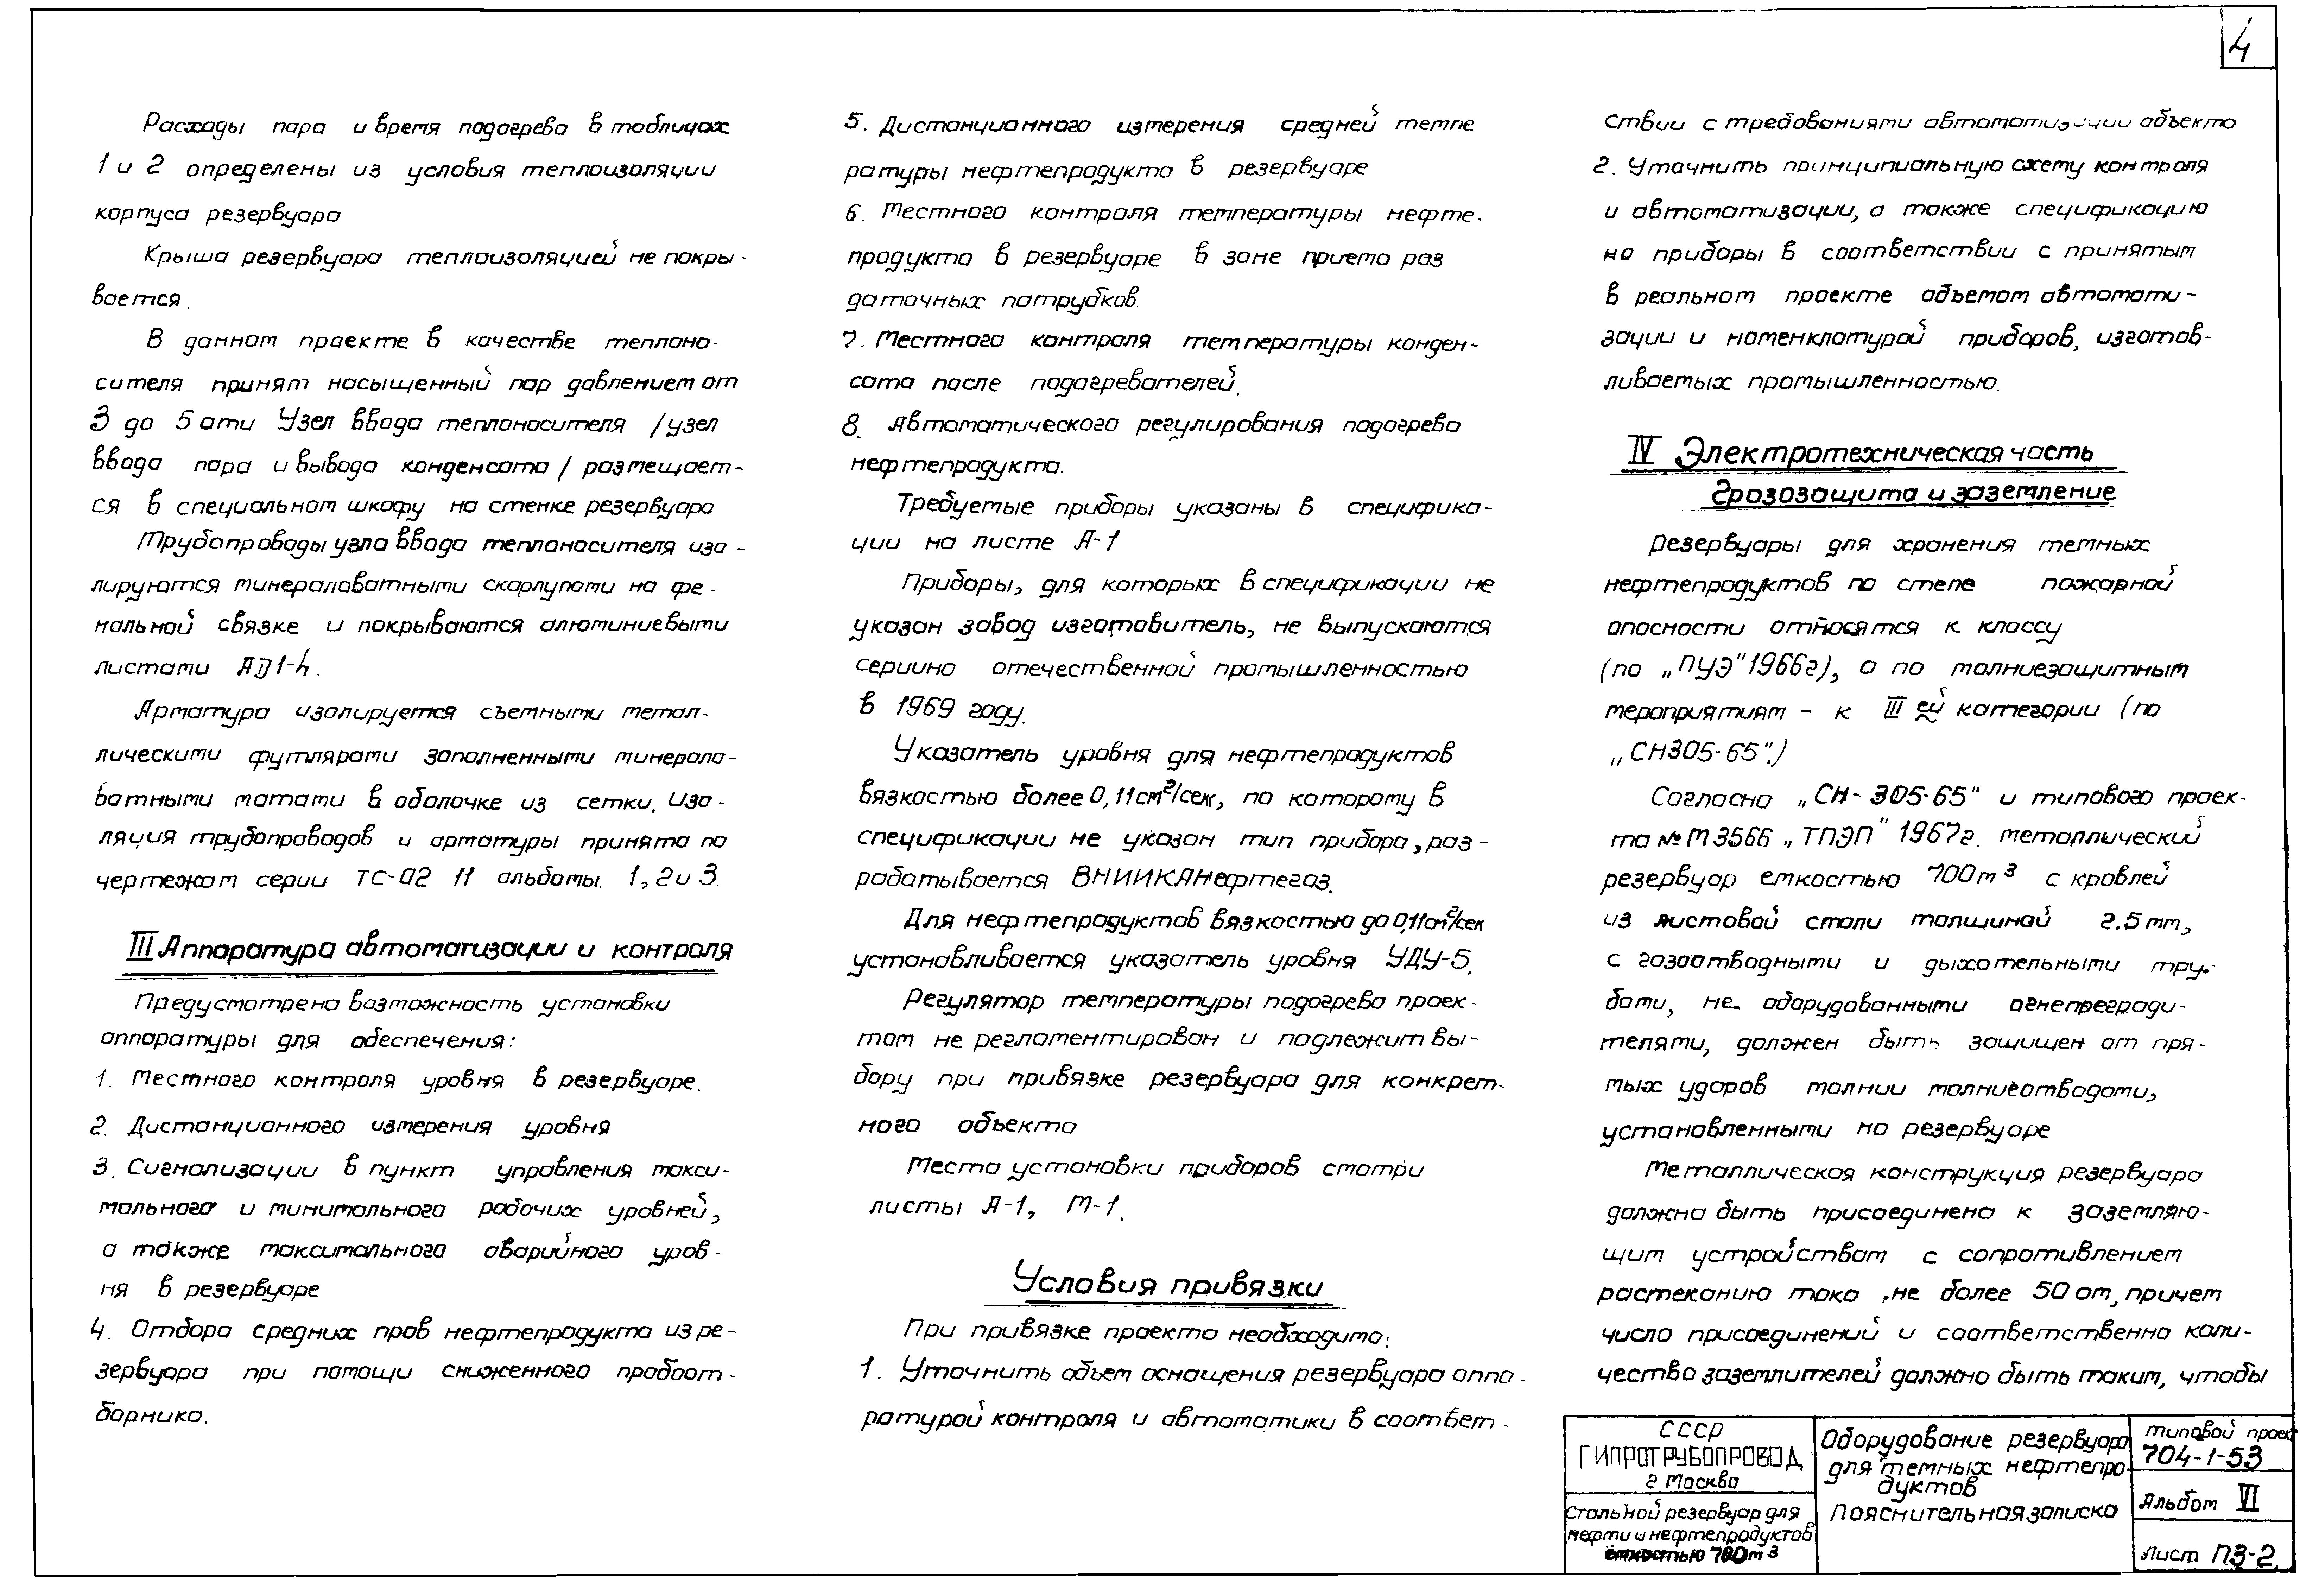 4
Расходы пара и время подогрева в таблицах
1 и 2 определены из условия теплоизоляции
корпуса резервуара
Крыша резервуара теплоизоляцией не покры-
вается.
В данном проекте в качестве теплоно-
сителя принят насыщенный пар давлением от
3 до 5 ати Узел ввода теплоносителя /узел
ввода пара и вывода конденсата/ размещает-
ся в специальном шкафу на стенке резервуара
Трубопроводы узла ввода теплоносителя изо-
лируются минераловатными скорлупами на фе-
нольной связке и покрываются алюминиевыми
листами АД1-4.
Арматура изолируется съемными метал-
лическими футлярами заполненными минерало-
ватными матами в оболочке из сетки. Изо-
ляция трубопроводов и арматуры принята по
чертежам серии ТС-02 11 альбомы. 1, 2 и 3.
III Аппаратура автоматизации и контроля
Предусмотрена возможность установки
аппаратуры для обеспечения:
1. Местного контроля уровня в резервуаре.
2. Дистанционного измерения уровня
3. Сигнализации в пункт управления макси-
мального и минимального рабочих уровней,
а также максимального аварийного уров-
ня в резервуаре
4. Отбора средних проб нефтепродукта из ре-
зервуара при помощи сниженного пробоот-
борника.
5. Дистанционного измерения средней темпе
ратуры нефтепродукта в резервуаре
6. Местного контроля температуры нефте-
продукта в резервуаре в зоне приемо раз
даточных патрубков.
7. Местного контроля температуры конден-
сата после подогревателей.
8. Автоматического регулирования подогрева
нефтепродукта.
Требуемые приборы указаны в специфика-
ции на листе А-1
Приборы, для которых в спецификации не
указан завод изготовитель, не выпускаются
серийно отечественной промышленностью
в 1969 году.
Указатель уровня для нефтепродуктов
вязкостью более 0,11см²/сек, по которому в
спецификации не указан тип прибора, раз-
рабатывается ВНИИКАнефтегаз.
Для нефтепродуктов вязкостью до 0,11см²/сек
устанавливается указатель уровня УДУ-5.
Регулятор температуры подогрева проек-
том не регламентирован и подлежит вы-
бору при привязке резервуара для конкрет-
ного объекта
Места установки приборов смотри
листы А-1, М-1.
Условия привязки
При привязке проекта необходимо:
1. Уточнить объем оснащения резервуара аппа-
ратурой контроля и автоматики в соответ-
ствии с требованиями автоматизации объекта
2. Уточнить принципиальную схему контроля
и автоматизации, а также спецификацию
на приборы в соответствии с принятым
в реальном проекте объемом автомати-
зации и номенклатурой приборов, изготов-
ливаемых промышленностью.
IV Электротехническая часть
Грозозащита и заземление
Резервуары для хранения темных
нефтепродуктов по степе пожарной
опасности относятся к классу
(по „ПУЭ" 1966г), а по молниезащитным
мероприятиям - к III ей категории (по
„СН305-65".)
Согласно „СН-305-65" и типового проек-
та № М3566 „ТПЭП" 1967г. металлический
резервуар емкостью 700м³ с кровлей
из листовой стали толщиной 2.5 мм,
с газоотводными и дыхательными тру-
бами, не оборудованными огнепрегради-
телями, должен быть защищен от пря-
мых ударов молнии молниеотводами,
установленными на резервуаре
Металлическая конструкция резервуара
должна быть присоединена к заземляю-
щим устройствам с сопротивлением
растеканию тока, не более 50 ом, причем
число присоединений и соответственно коли-
чество заземлителей должно быть таким, чтобы
СССР
ГИПРОТРУБОПРОВОД
г Москва
Стальной резервуар для
нефти и нефтепродуктов
ёмкостью 700м³
Оборудование резервуара
для темных нефтепро-
дуктов
Пояснительная записка
типовой проект
704-1-53
Альбом VI
Лист ПЗ-2